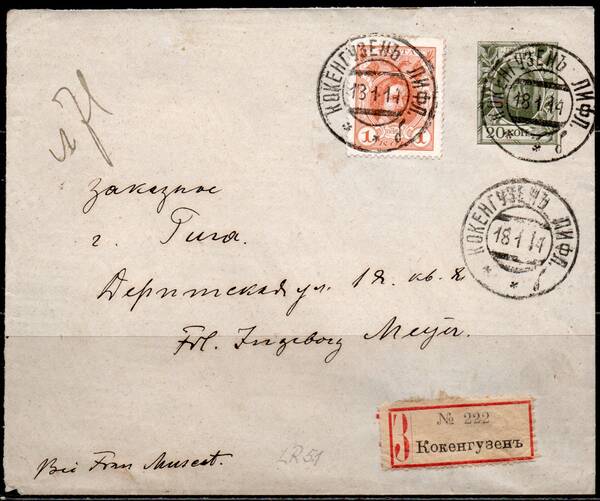 КОКЕНГУЗЕНЪ ЛИФЛ.
18 1 14
* * б
1 1
КОКЕНГУЗЕНЪ ЛИФЛ.
18 1 14
* * б
20 КОП
КОКЕНГУЗЕНЪ ЛИФЛ.
18 1 14
* * б
Заказное
г. Рига.
Дерптская ул. кв.
Frl. Ingeborg Meyer.
З
№ 222
Кокенгузенъ
LR51
Bei Frau